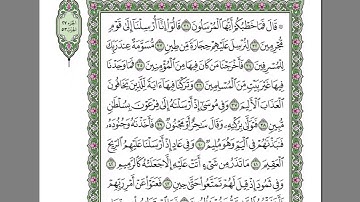 ۞ قَالَ فَمَا خَطْبُكُمْ أَيُّهَا ٱلْمُرْسَلُونَ ٣١ قَالُوٓا۟ إِنَّآ أُرْسِلْنَآ إِلَىٰ قَوْمٍ
مُّجْرِمِينَ ٣٢ لِنُرْسِلَ عَلَيْهِمْ حِجَارَةً مِّن طِينٍ ٣٣ مُّسَوَّمَةً عِندَ رَبِّكَ
لِلْمُسْرِفِينَ ٣٤ فَأَخْرَجْنَا مَن كَانَ فِيهَا مِنَ ٱلْمُؤْمِنِينَ ٣٥ فَمَا وَجَدْنَا
فِيهَا غَيْرَ بَيْتٍ مِّنَ ٱلْمُسْلِمِينَ ٣٦ وَتَرَكْنَا فِيهَآ ءَايَةً لِّلَّذِينَ يَخَافُونَ
ٱلْعَذَابَ ٱلْأَلِيمَ ٣٧ وَفِى مُوسَىٰٓ إِذْ أَرْسَلْنَٰهُ إِلَىٰ فِرْعَوْنَ بِسُلْطَٰنٍ
مُّبِينٍ ٣٨ فَتَوَلَّىٰ بِرُكْنِهِۦ وَقَالَ سَٰحِرٌ أَوْ مَجْنُونٌ ٣٩ فَأَخَذْنَٰهُ وَجُنُودَهُۥ
فَنَبَذْنَٰهُمْ فِى ٱلْيَمِّ وَهُوَ مُلِيمٌ ٤٠ وَفِى عَادٍ إِذْ أَرْسَلْنَا عَلَيْهِمُ ٱلرِّيحَ
ٱلْعَقِيمَ ٤١ مَا تَذَرُ مِن شَىْءٍ أَتَتْ عَلَيْهِ إِلَّا جَعَلَتْهُ كَٱلرَّمِيمِ ٤٢
وَفِى ثَمُودَ إِذْ قِيلَ لَهُمْ تَمَتَّعُوا۟ حَتَّىٰ حِينٍ ٤٣ فَعَتَوْا۟ عَنْ أَمْرِ رَبِّهِمْ